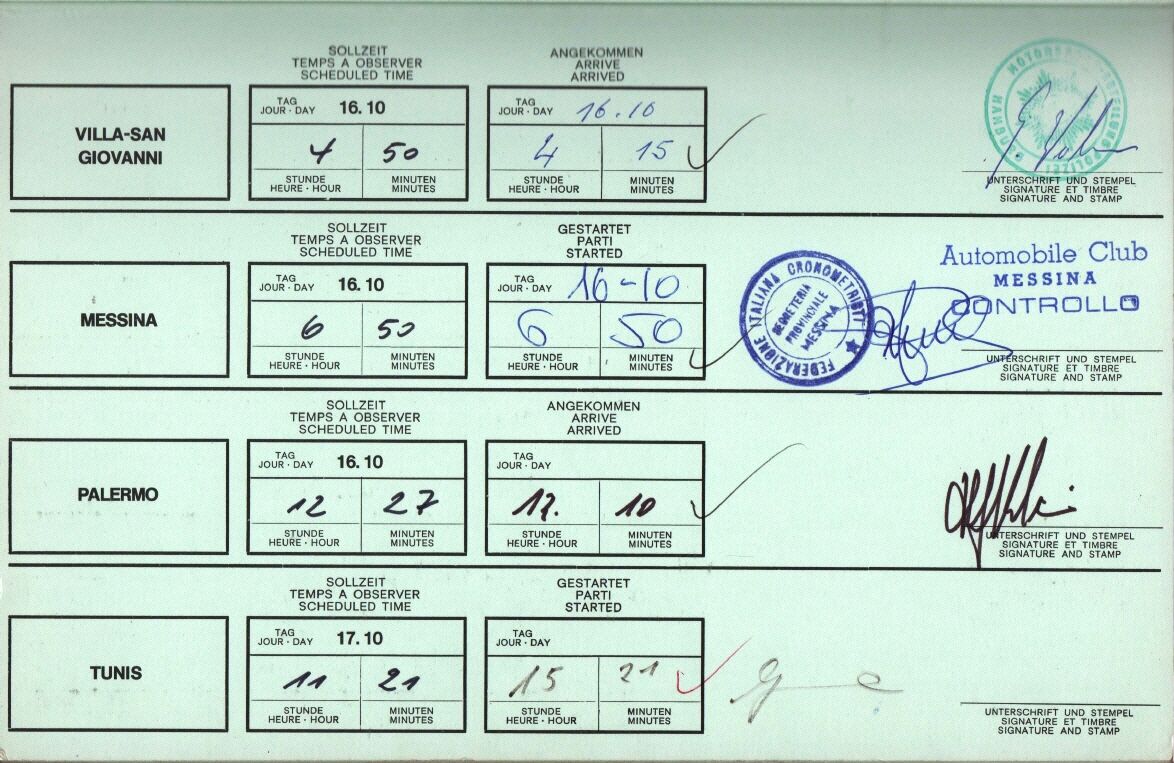 SOLLZEIT
TEMPS A OBSERVER
SCHEDULED TIME
ANGEKOMMEN
ARRIVE
ARRIVED
VILLA-SAN
GIOVANNI
TAG
JOUR · DAY 16.10
4 50
STUNDE
HEURE · HOUR
MINUTEN
MINUTES
TAG
JOUR · DAY 16.10
4 15
STUNDE
HEURE · HOUR
MINUTEN
MINUTES
UNTERSCHRIFT UND STEMPEL
SIGNATURE ET TIMBRE
SIGNATURE AND STAMP
SOLLZEIT
TEMPS A OBSERVER
SCHEDULED TIME
GESTARTET
PARTI
STARTED
MESSINA
TAG
JOUR · DAY 16.10
6 50
STUNDE
HEURE · HOUR
MINUTEN
MINUTES
TAG
JOUR · DAY 16-10
6 50
STUNDE
HEURE · HOUR
MINUTEN
MINUTES
FEDERAZIONE ITALIANA CRONOMETRISTI
SEGRETERIA
PROVINCIALE
MESSINA
Automobile Club
MESSINA
CONTROLLO
UNTERSCHRIFT UND STEMPEL
SIGNATURE ET TIMBRE
SIGNATURE AND STAMP
SOLLZEIT
TEMPS A OBSERVER
SCHEDULED TIME
ANGEKOMMEN
ARRIVE
ARRIVED
PALERMO
TAG
JOUR · DAY 16.10
12 27
STUNDE
HEURE · HOUR
MINUTEN
MINUTES
TAG
JOUR · DAY
10
STUNDE
HEURE · HOUR
MINUTEN
MINUTES
UNTERSCHRIFT UND STEMPEL
SIGNATURE ET TIMBRE
SIGNATURE AND STAMP
SOLLZEIT
TEMPS A OBSERVER
SCHEDULED TIME
GESTARTET
PARTI
STARTED
TUNIS
TAG
JOUR · DAY 17.10
11 21
STUNDE
HEURE · HOUR
MINUTEN
MINUTES
TAG
JOUR · DAY
15 21
STUNDE
HEURE · HOUR
MINUTEN
MINUTES
UNTERSCHRIFT UND STEMPEL
SIGNATURE ET TIMBRE
SIGNATURE AND STAMP